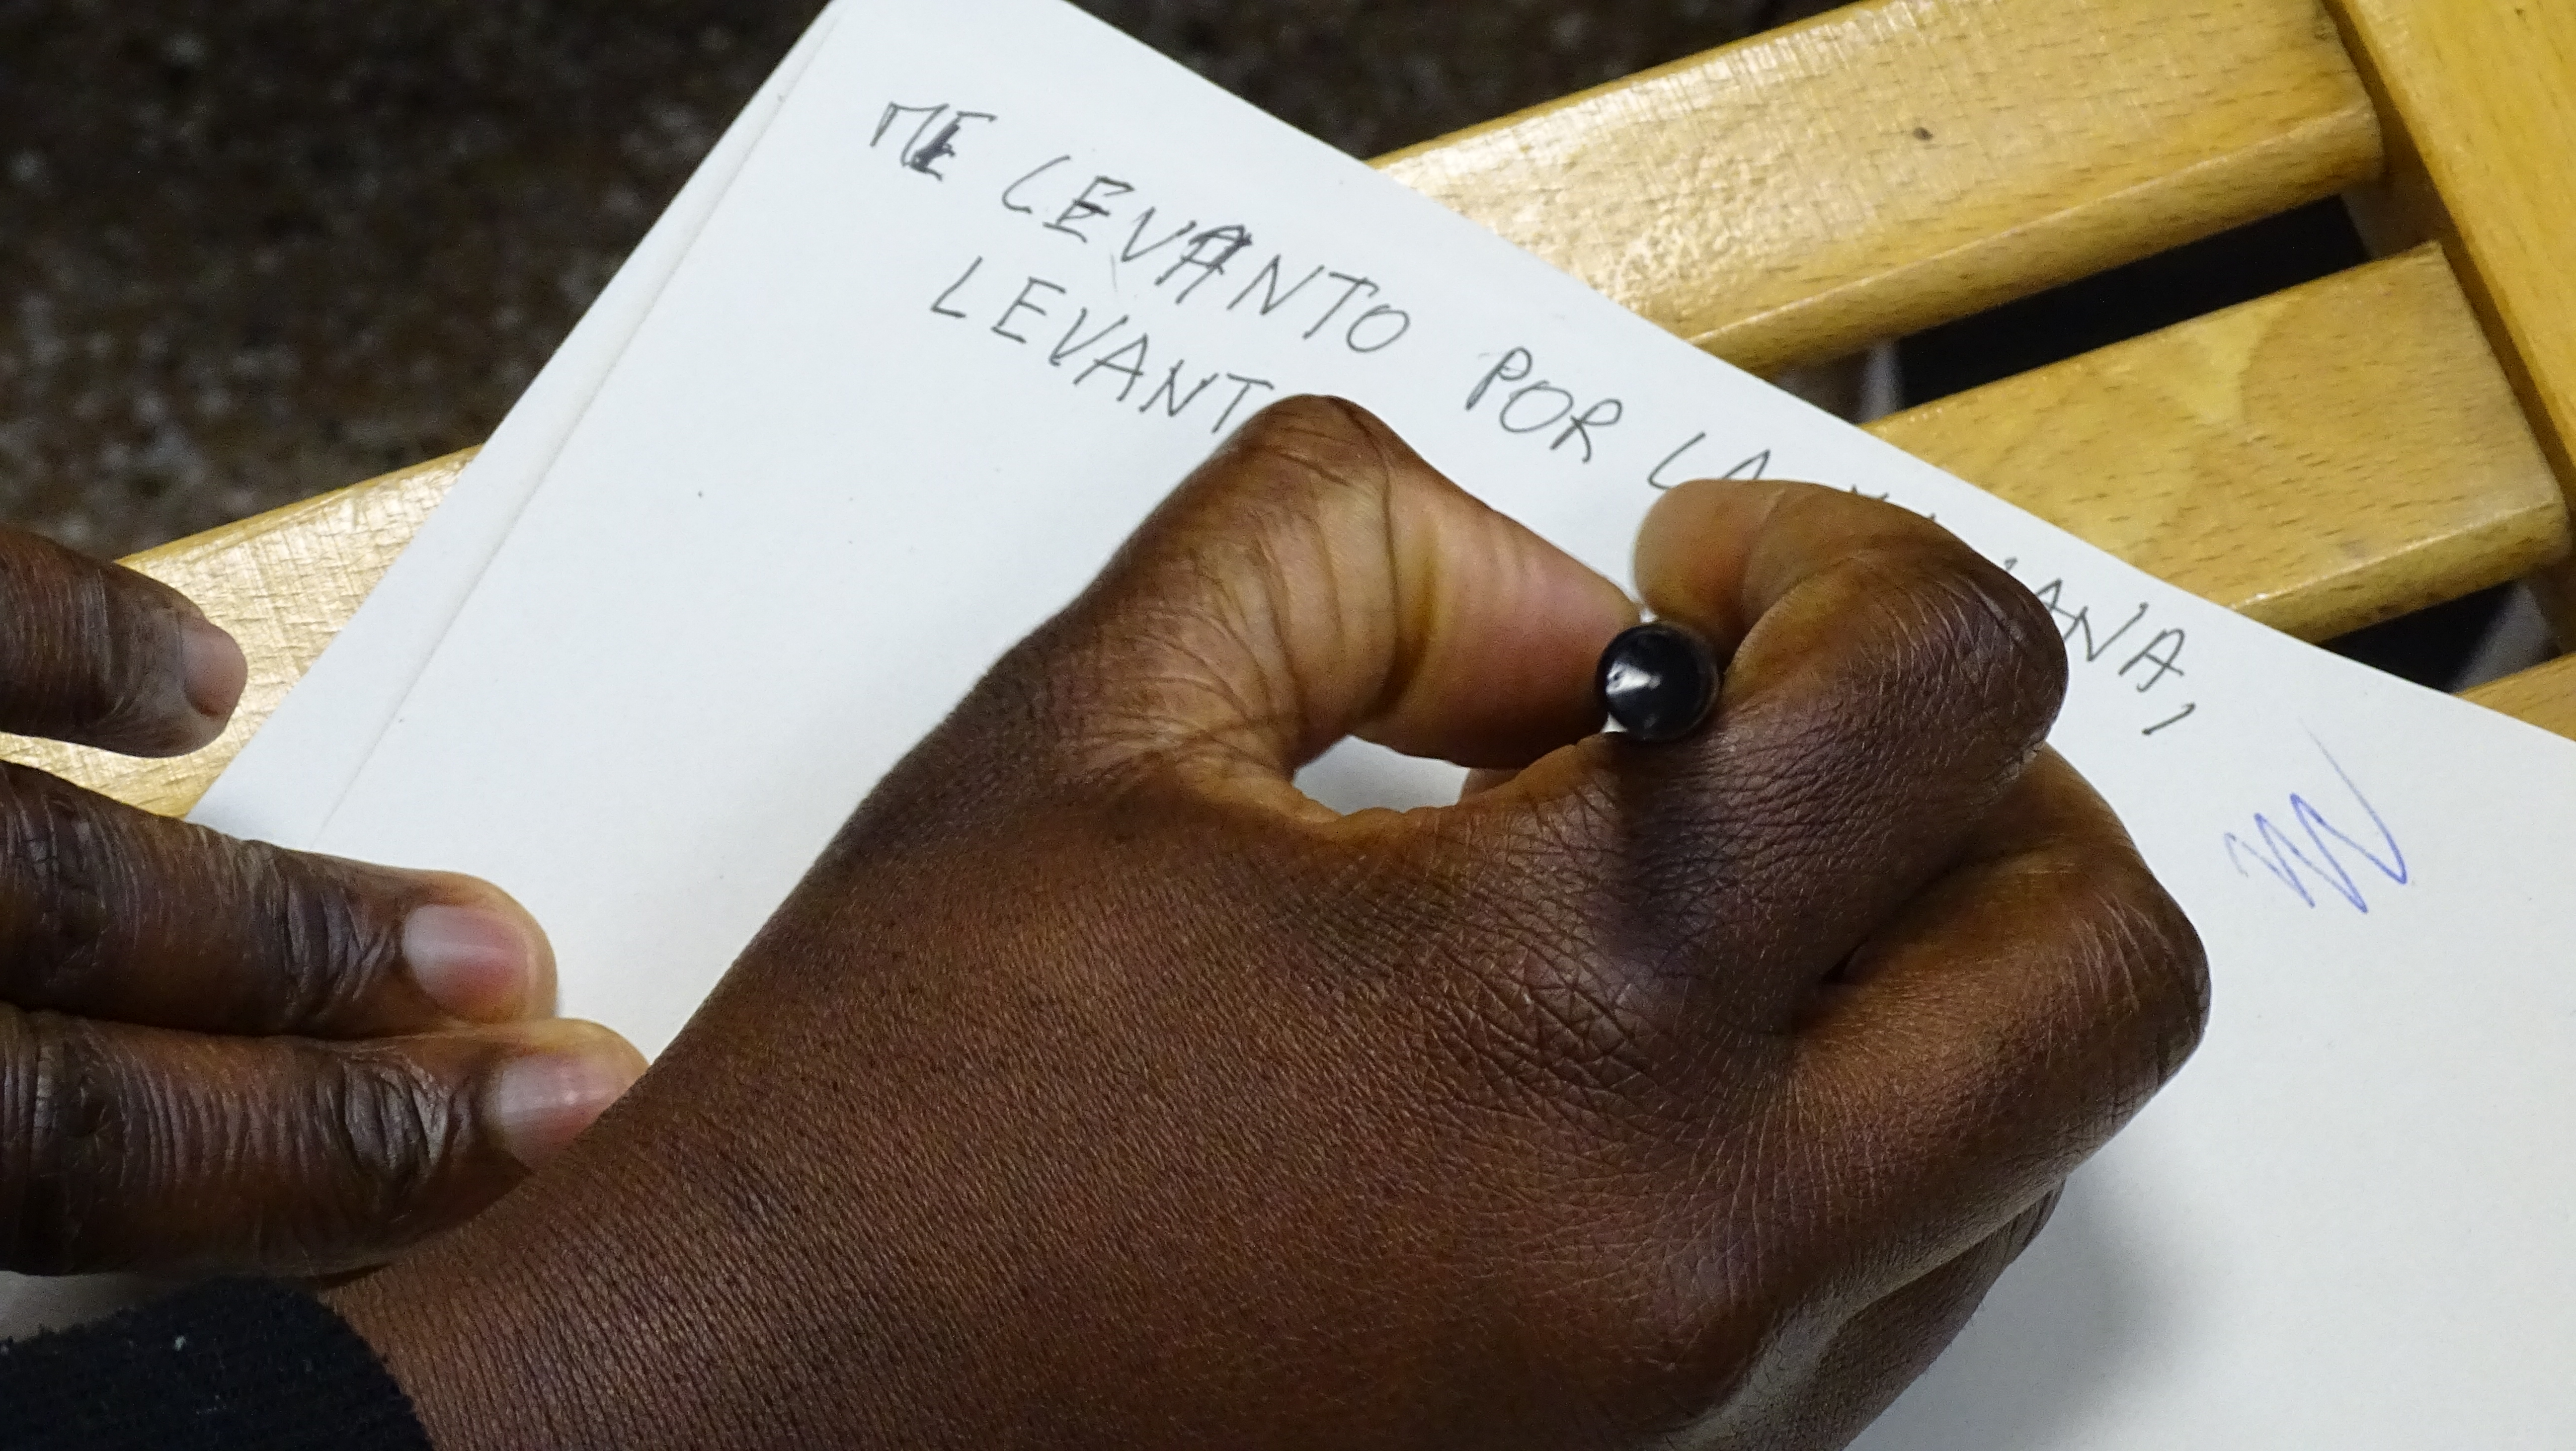 ME LEVANTO POR LA MAÑANA,
LEVANT